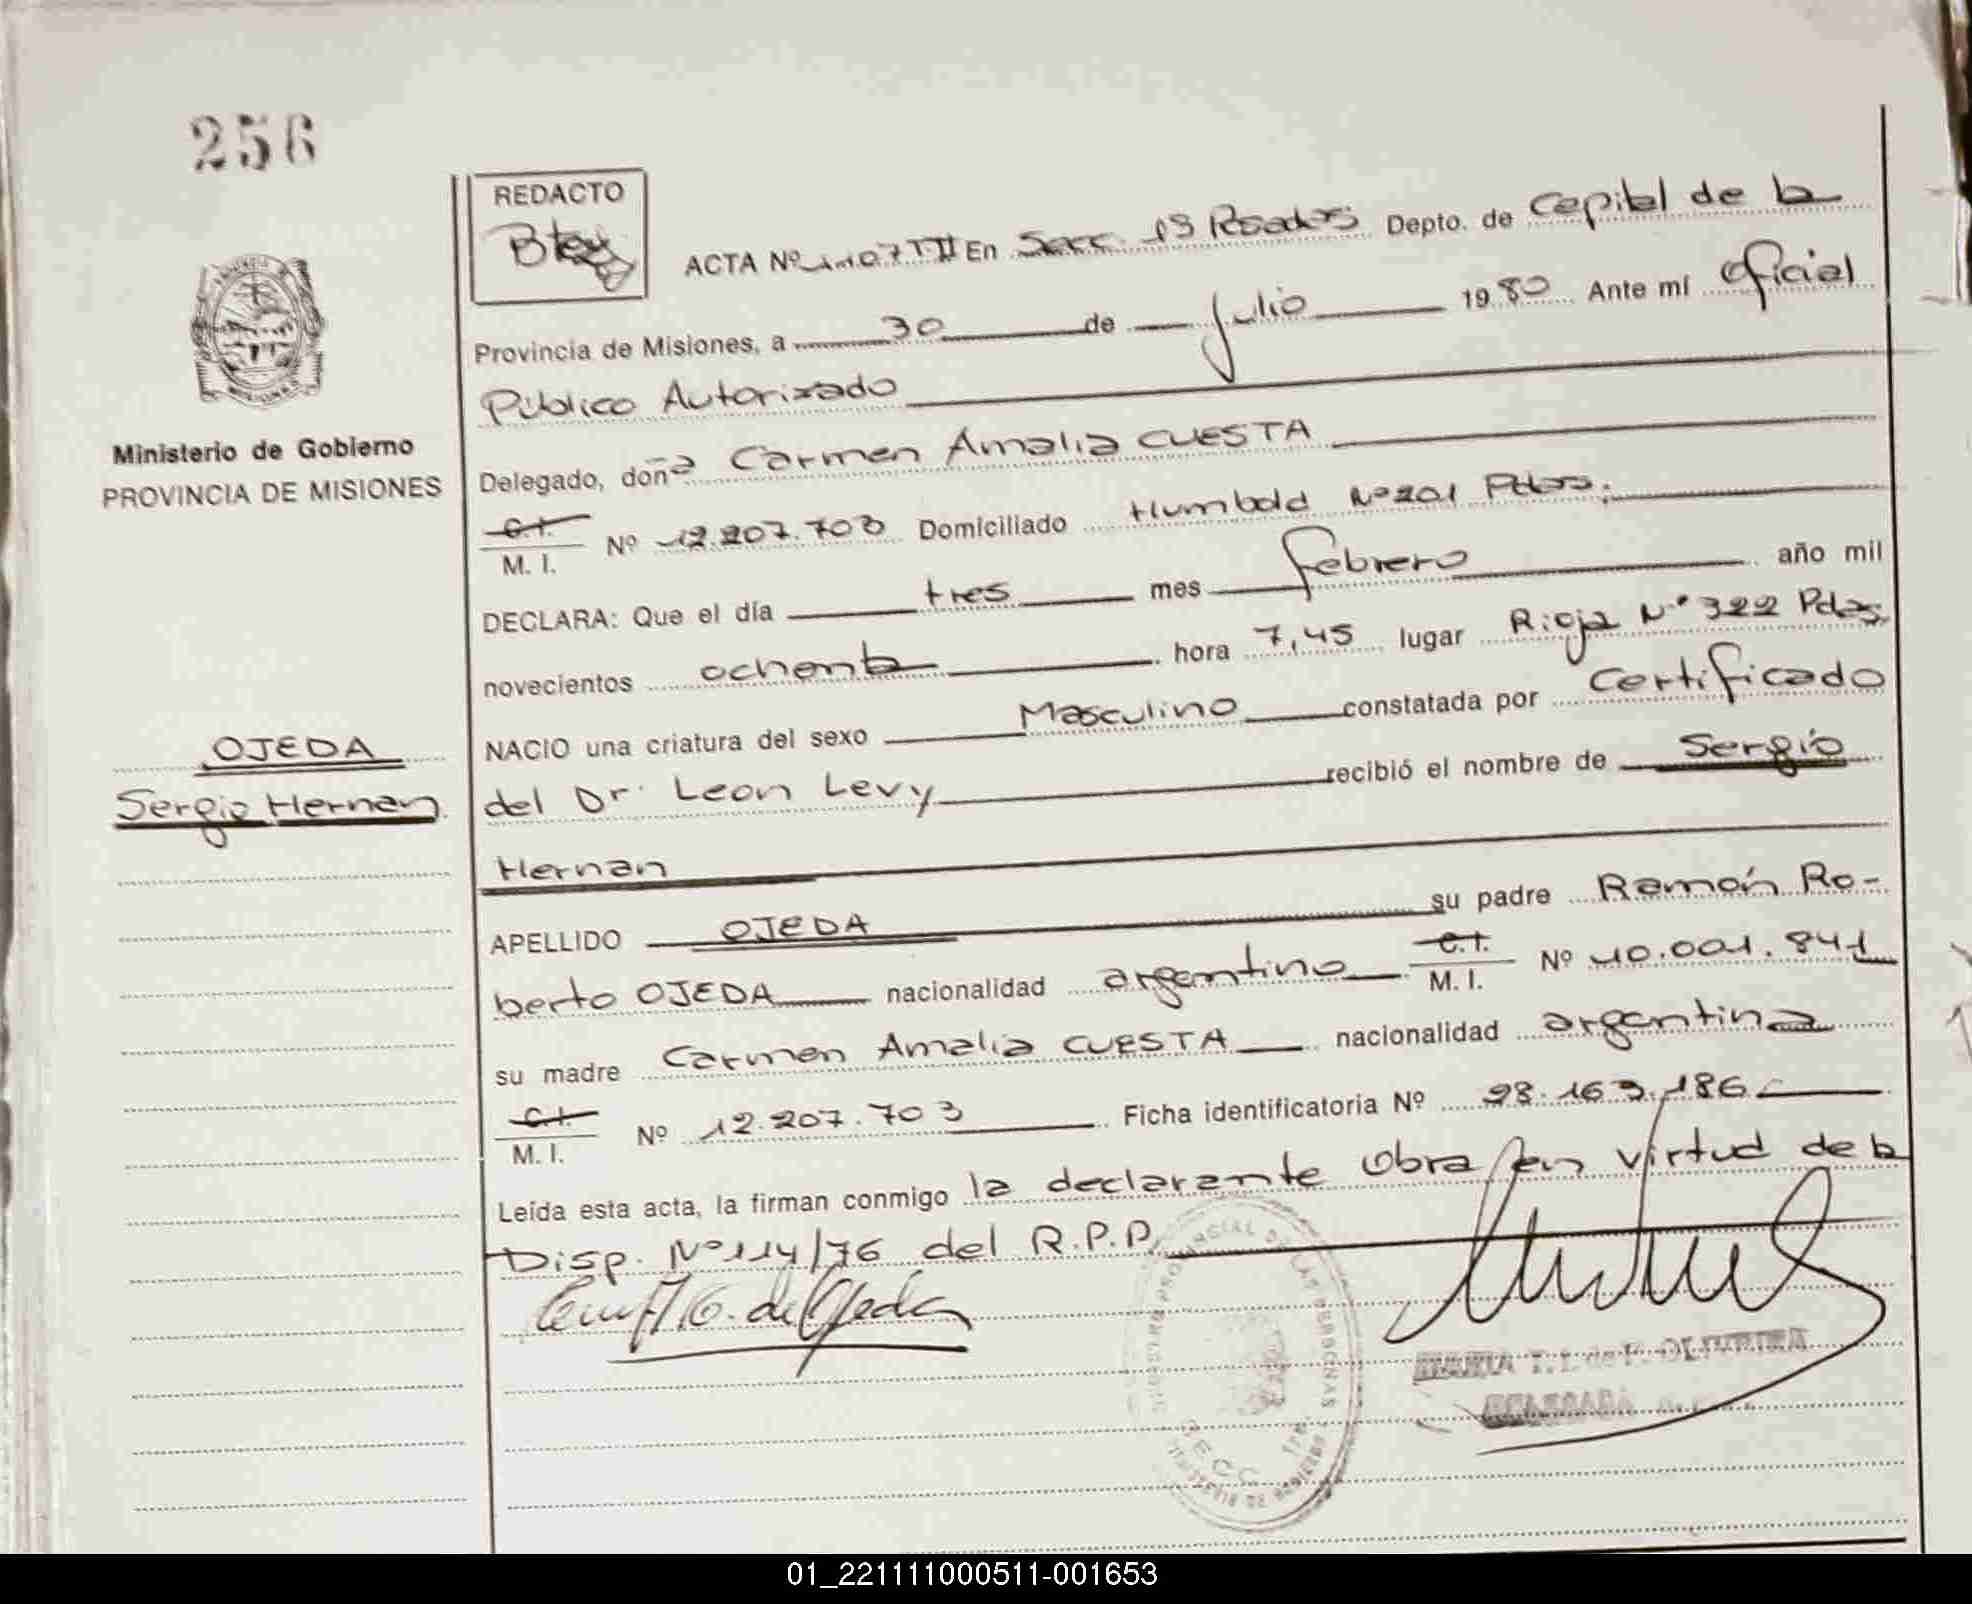 256
REDACTO
ACTA Nº 1107 TII En Secc. 1ª Posadas Depto. de Capital de la
Provincia de Misiones, a 30 de Julio 1980 Ante mí Oficial
Público Autorizado
Delegado, doña Carmen Amalia CUESTA
C.I.
M. I. Nº 12.207.703 Domiciliado Humbold Nº 201 Pdas.
DECLARA: Que el día tres mes febrero año mil
novecientos ochenta hora 7,45 lugar Rioja Nº 322 Pdas.
NACIO una criatura del sexo Masculino constatada por Certificado
del Dr. Leon Levy recibió el nombre de Sergio
Hernan
APELLIDO OJEDA su padre Ramón Ro-
berto OJEDA nacionalidad argentino C.I. M. I. Nº 10.001.841
su madre Carmen Amalia CUESTA nacionalidad argentina
C.I.
M. I. Nº 12.207.703 Ficha identificatoria Nº 28.163.186
Leída esta acta, la firman conmigo la declarante Obra en virtud de la
Disp. Nº 114/76 del R.P.P.
de Ojeda
MARIA T. L. de F. OLIVEIRA
DELEGADA
Ministerio de Gobierno
PROVINCIA DE MISIONES
OJEDA
Sergio Hernan
01_221111000511-001653